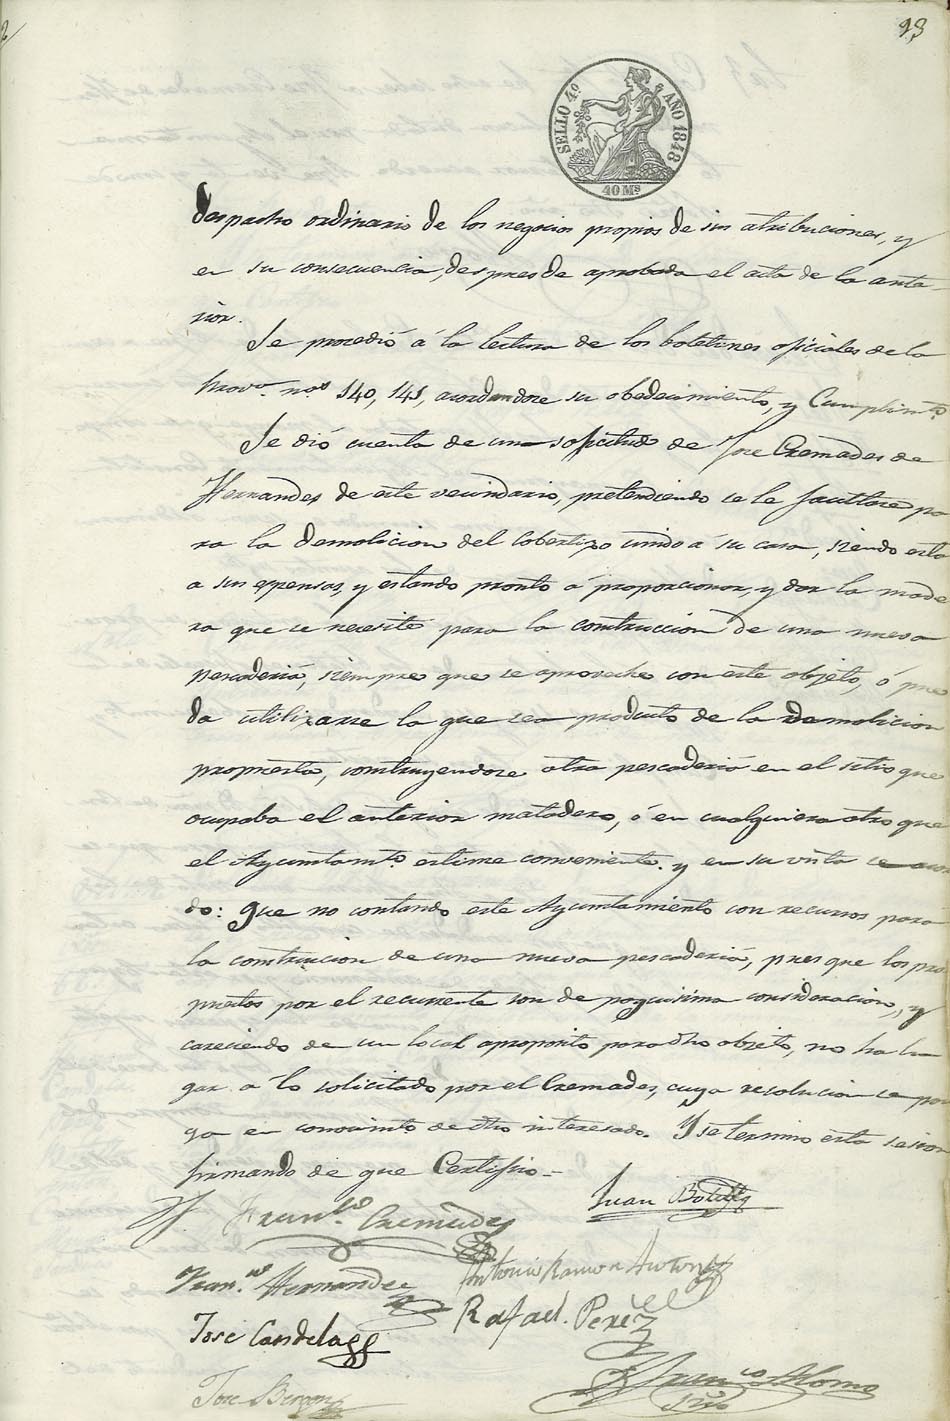 93
SELLO 4º AÑO 1848
40 Mˢ
despacho ordinario de los negocios propios de sus atribuciones, y
en su consecuencia, despues de aprobada el acta de la ante-
rior.
Se procedió á la lectura de los boletines oficiales de la
Provª nos 140, 141, acordandose su obedecimiento, y Cumplimto
Se dió cuenta de una solicitud de Jose Cremades de
Hernandes de este vecindario, pretendiendo se le facultase pa
ra la demolicion del cobertizo unido á su casa, siendo esto
a sus espensas, y estando pronto á proporcionar, y dar la made
ra que se necesite para la construccion de una nueva
pescaderiá, siempre que se aproveche con este objeto, ó pue
da utilizarse la que sea producto de la demolicion
propuesta, construyendose otra pescaderiá en el sitio que
ocupaba el anterior matadero, ó en cualquiera otro que
el Ayuntamto estime conveniente. y en su vista se acor
do: que no contando este Ayuntamiento con recursos para
la construccion de una nueva pescaderiá, pues que los pro
puestos por el recurrente son de poquisima consideracion, y
careciendo de un local aproposito para dho objeto, no ha lu
gar a lo solicitado por el Cremades, cuya resolucion se pon
ga en conocimto de dho interesado. Y se termino esta sesion
firmando de que Certifico=
Franco Cremades
Juan Botella
Franco Hernandez
Antonio Ramon Anton
Jose Candela
Rafael. Perez
Jose Bergon
Franco Alomo
Srio